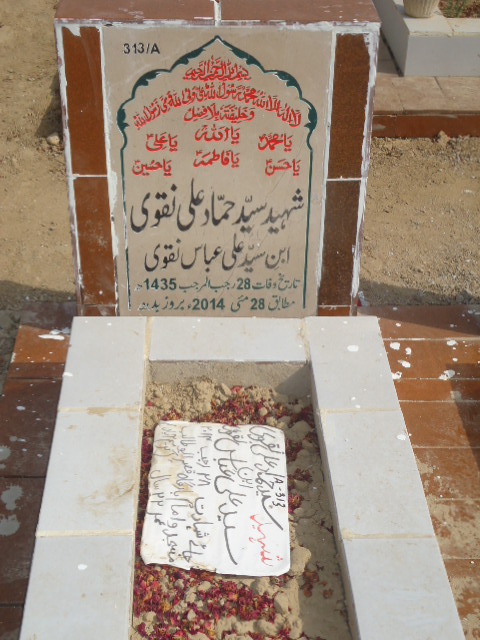 313/A
بسم اللہ الرحمن الرحیم
لا الہ الا اللہ محمد رسول اللہ علی ولی اللہ وصی رسول اللہ
و خلیفتہ بلا فصل
یا اللہ
یا محمدؐ یا علیؑ
یا فاطمہؑ
یا حسنؑ یا حسینؑ
شہید سیّد حمّاد علی نقوی
ابنِ سیّد علی عباس نقوی
تاریخ وفات 28 رجب المرجب 1435ھ
مطابق 28 مئی 2014ء بروز بدھ
A-313
شہید
ابن
سید علی عباس نقوی